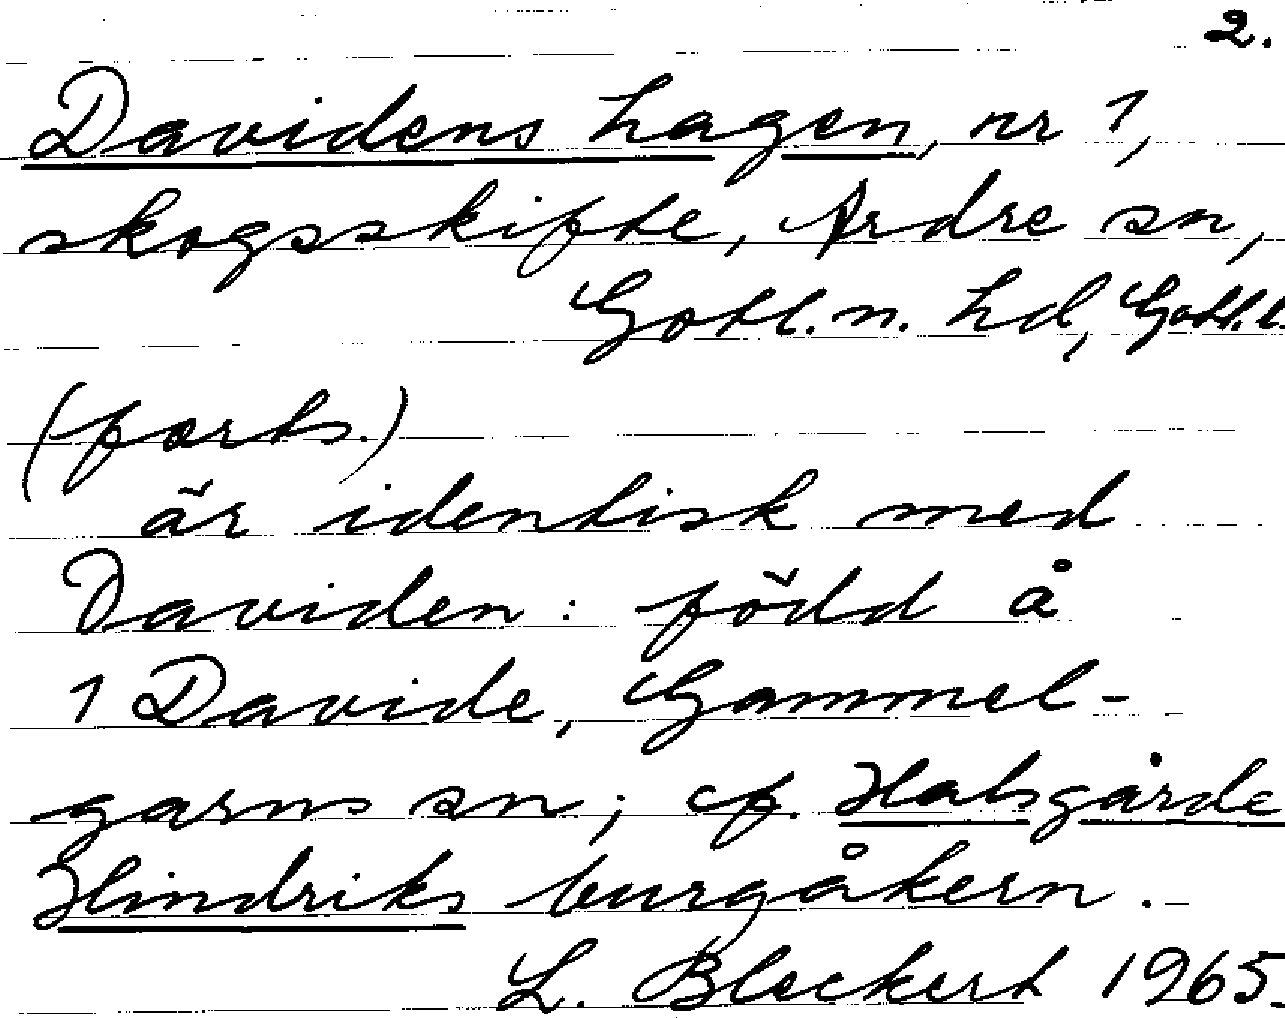 2.
Davidens hagen, nr 1,
skogsskifte, Ardre sn,
Gotl. n. hd, Gotl. l.
(forts.)
är identisk med
Daviden: född å
1 Davide, Gammel-
garns sn; cf. Halsgårde
Hindriks burgåkern.
L. Bleckert 1965.